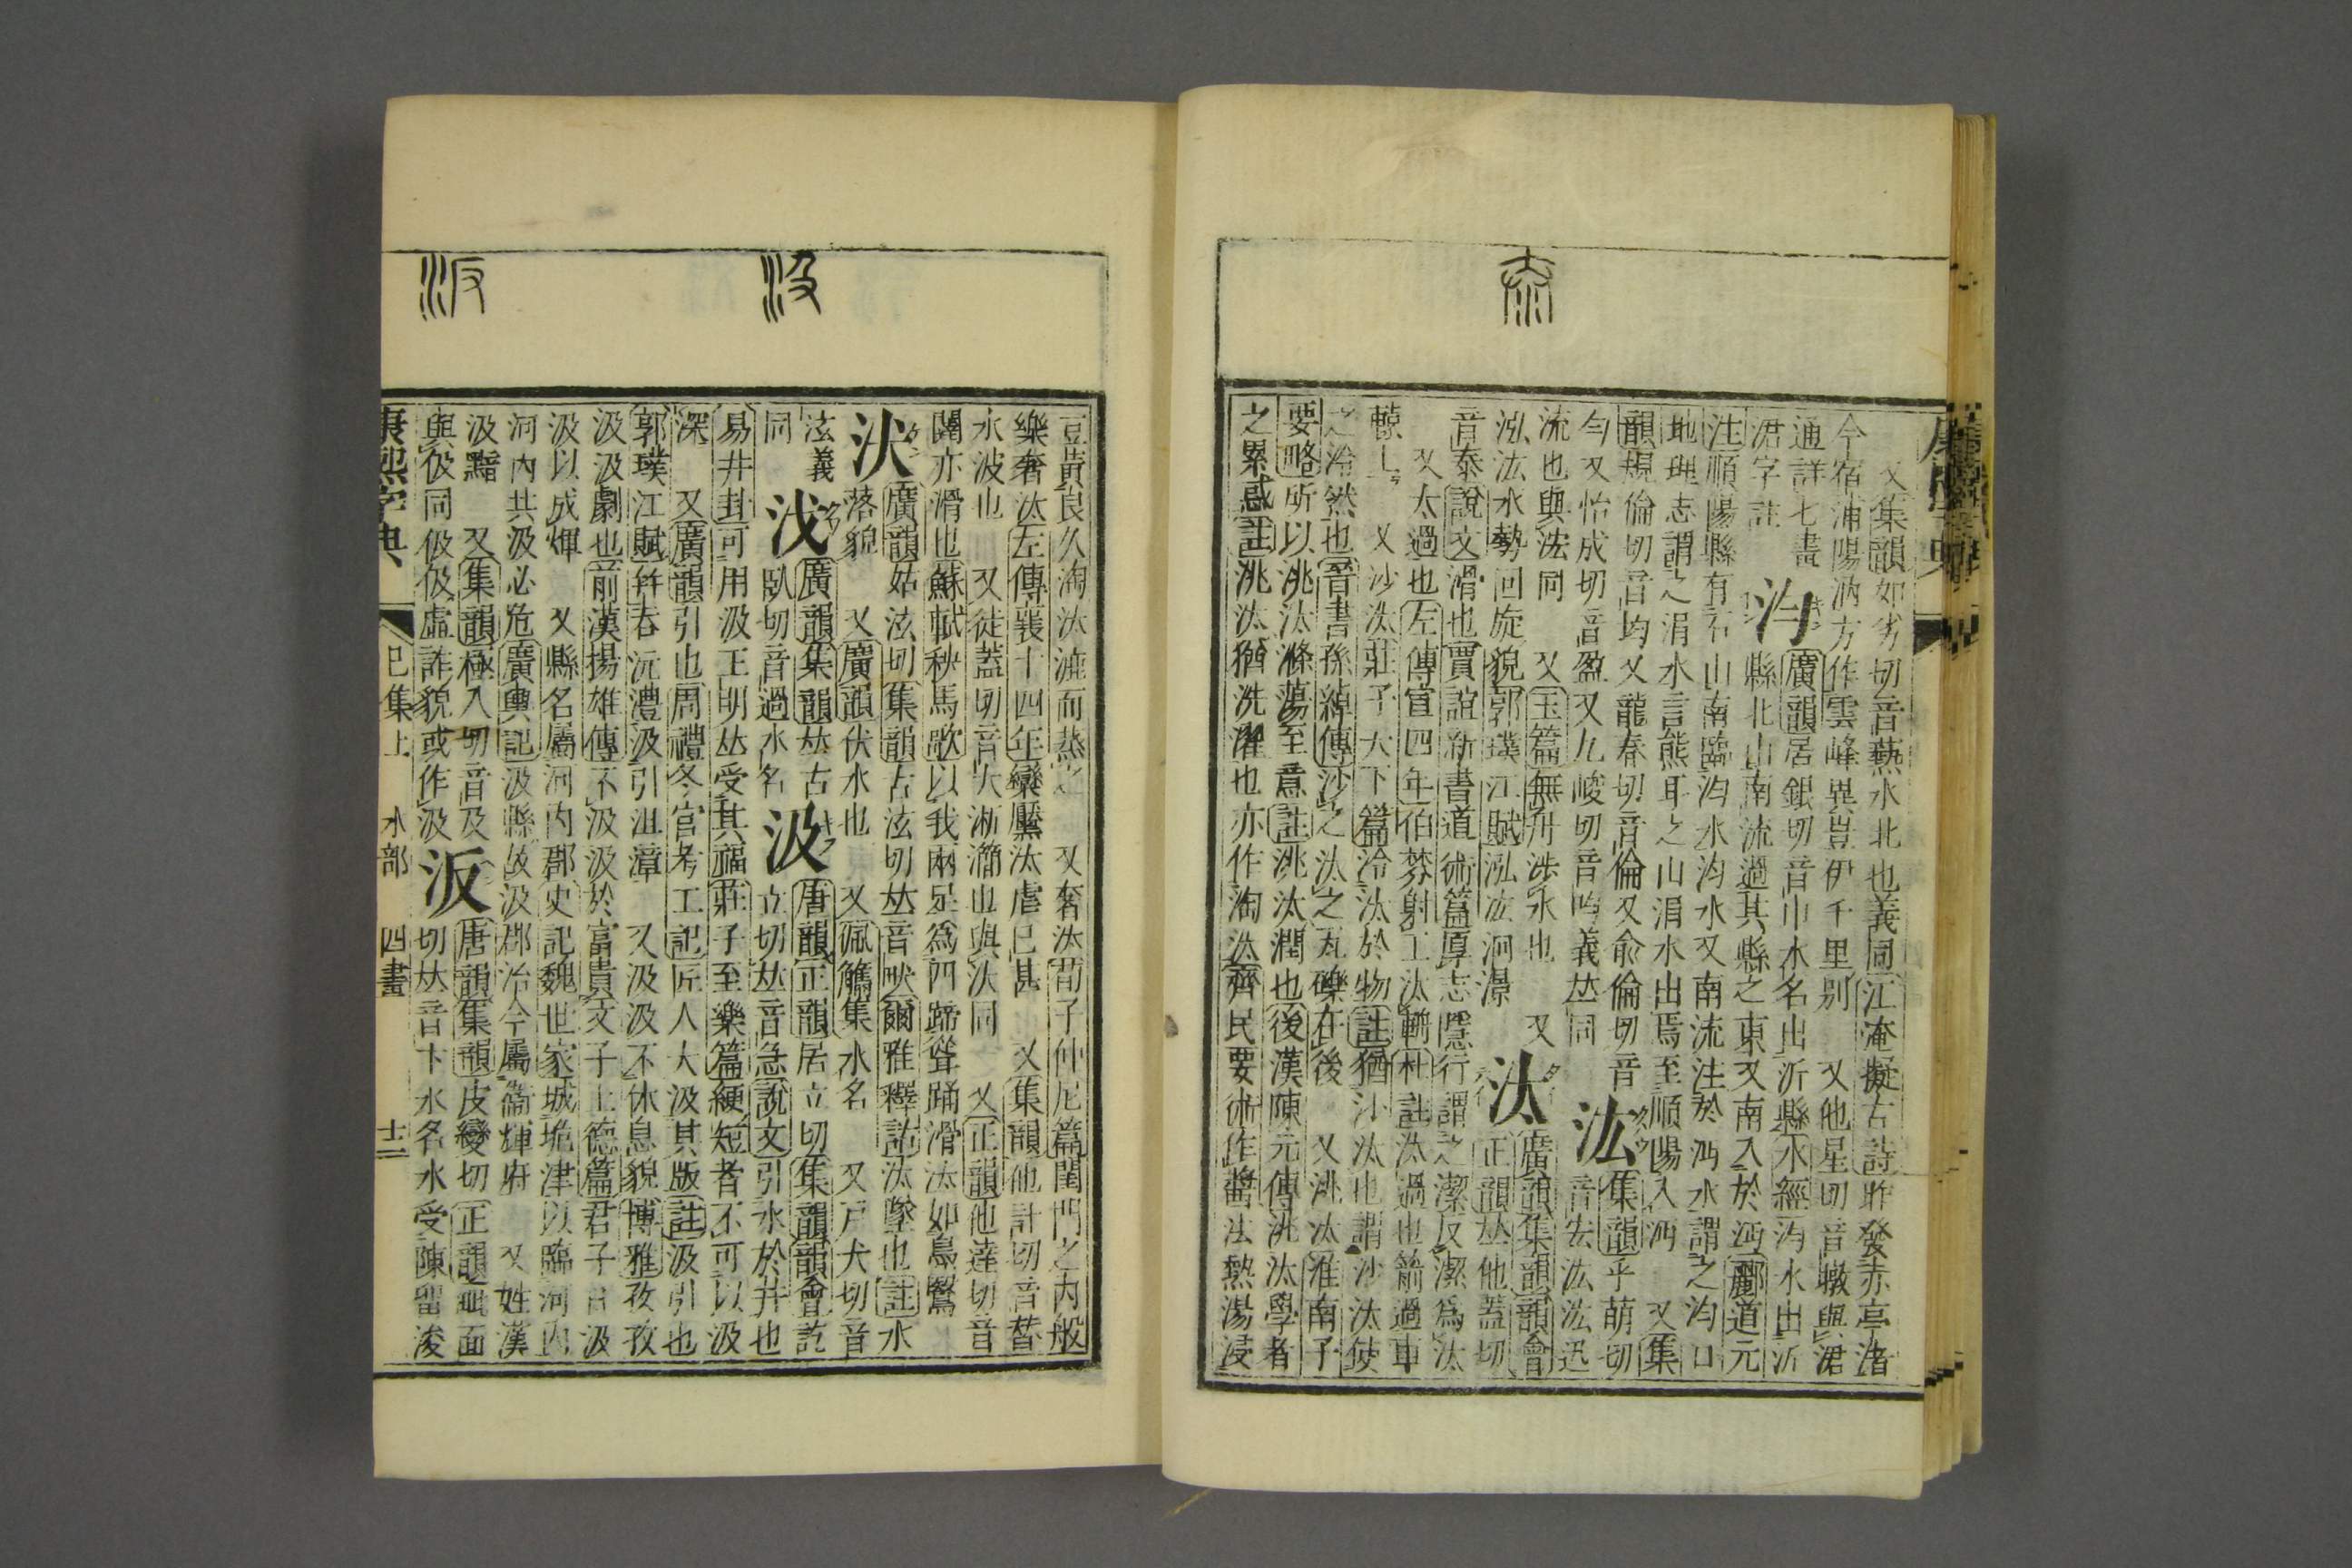 又集韻如劣切音爇水北也義同江淹擬古詩昨發赤亭渚
今宿浦陽汭方作雲峰異豈伊千里别 又他星切音暾與涒
通詳七畫
涒字註 汮 廣韻居銀切音巾水名出沂縣水經汮水出沂
縣北山南流過其縣之東又南入於沔酈道元
注順陽縣有石山南臨汮水汮水又南流注於沔水謂之汮口
地理志謂之涓水言熊耳之山涓水出焉至順陽入沔 又集
韻規倫切音均又龍春切音倫又兪倫切音
勻又怡成切音盈又九峻切音呁義𠀤同 汯 集韻乎萌切
音宏汯汯迅
流也與浤同 又玉篇無舟涉水也 又
泓汯水勢回旋貌郭璞江賦泓汯泂澋 汰 廣韻集韻韻會
正韻𠀤他蓋切
音泰說文滑也賈誼新書道術篇厚志隱行謂之潔反潔爲汰
又太過也左傳宣四年伯棼射王汰輈杜註汰過也箭過車
轅上 又沙汰莊子天下篇泠汰於物註猶沙汰也謂沙汰使
之泠然也晉書孫綽傳沙之汰之瓦礫在後 又洮汰淮南子
要略所以洮汰滌蕩至意註洮汰潤也後漢陳元傳洮汰學者
之累惑註洮汰猶洗濯也亦作淘汰齊民要術作醬法熱湯浸
豆黃良久淘汰漉而蒸之 又奢汰荀子仲尼篇閨門之内般
樂奢汰左傳襄十四年欒黶汰虐已甚 又集韻他計切音替
水波也 又徒蓋切音大淅灡也與汏同 又正韻他達切音
闥亦滑也蘇軾秧馬歌以我兩足爲四蹄聳踊滑汰如鳧鷖
汱 廣韻姑泫切集韻古泫切𠀤音畎爾雅釋詁汱墜也註水
落貌 又廣韻伏水也 又佩觿集水名 又戸犬切音
泫義
同 㳀 廣韻集韻𠀤古
臥切音過水名 汲 唐韻正韻居立切集韻韻會訖
立切𠀤音急說文引水於井也
易井卦可用汲王明𠀤受其福莊子至樂篇綆短者不可以汲
深 又廣韻引也周禮冬官考工記匠人大汲其版註汲引也
郭璞江賦幷吞沅澧汲引沮漳 又汲汲不休息貌博雅孜孜
汲汲劇也前漢揚雄傳不汲汲於富貴文子上德篇君子日汲
汲以成煇 又縣名屬河内郡史記魏世家城垝津以臨河内
河内共汲必危廣輿記汲縣故汲郡治今屬衞輝府 又姓漢
汲黯 又集韻極入切音及
與伋同伋伋虛詐貌或作汲 汳 唐韻集韻皮變切正韻毗面
切𠀤音卞水名水受陳留浚
康熙字典 巳集上 水部 四畫 十二